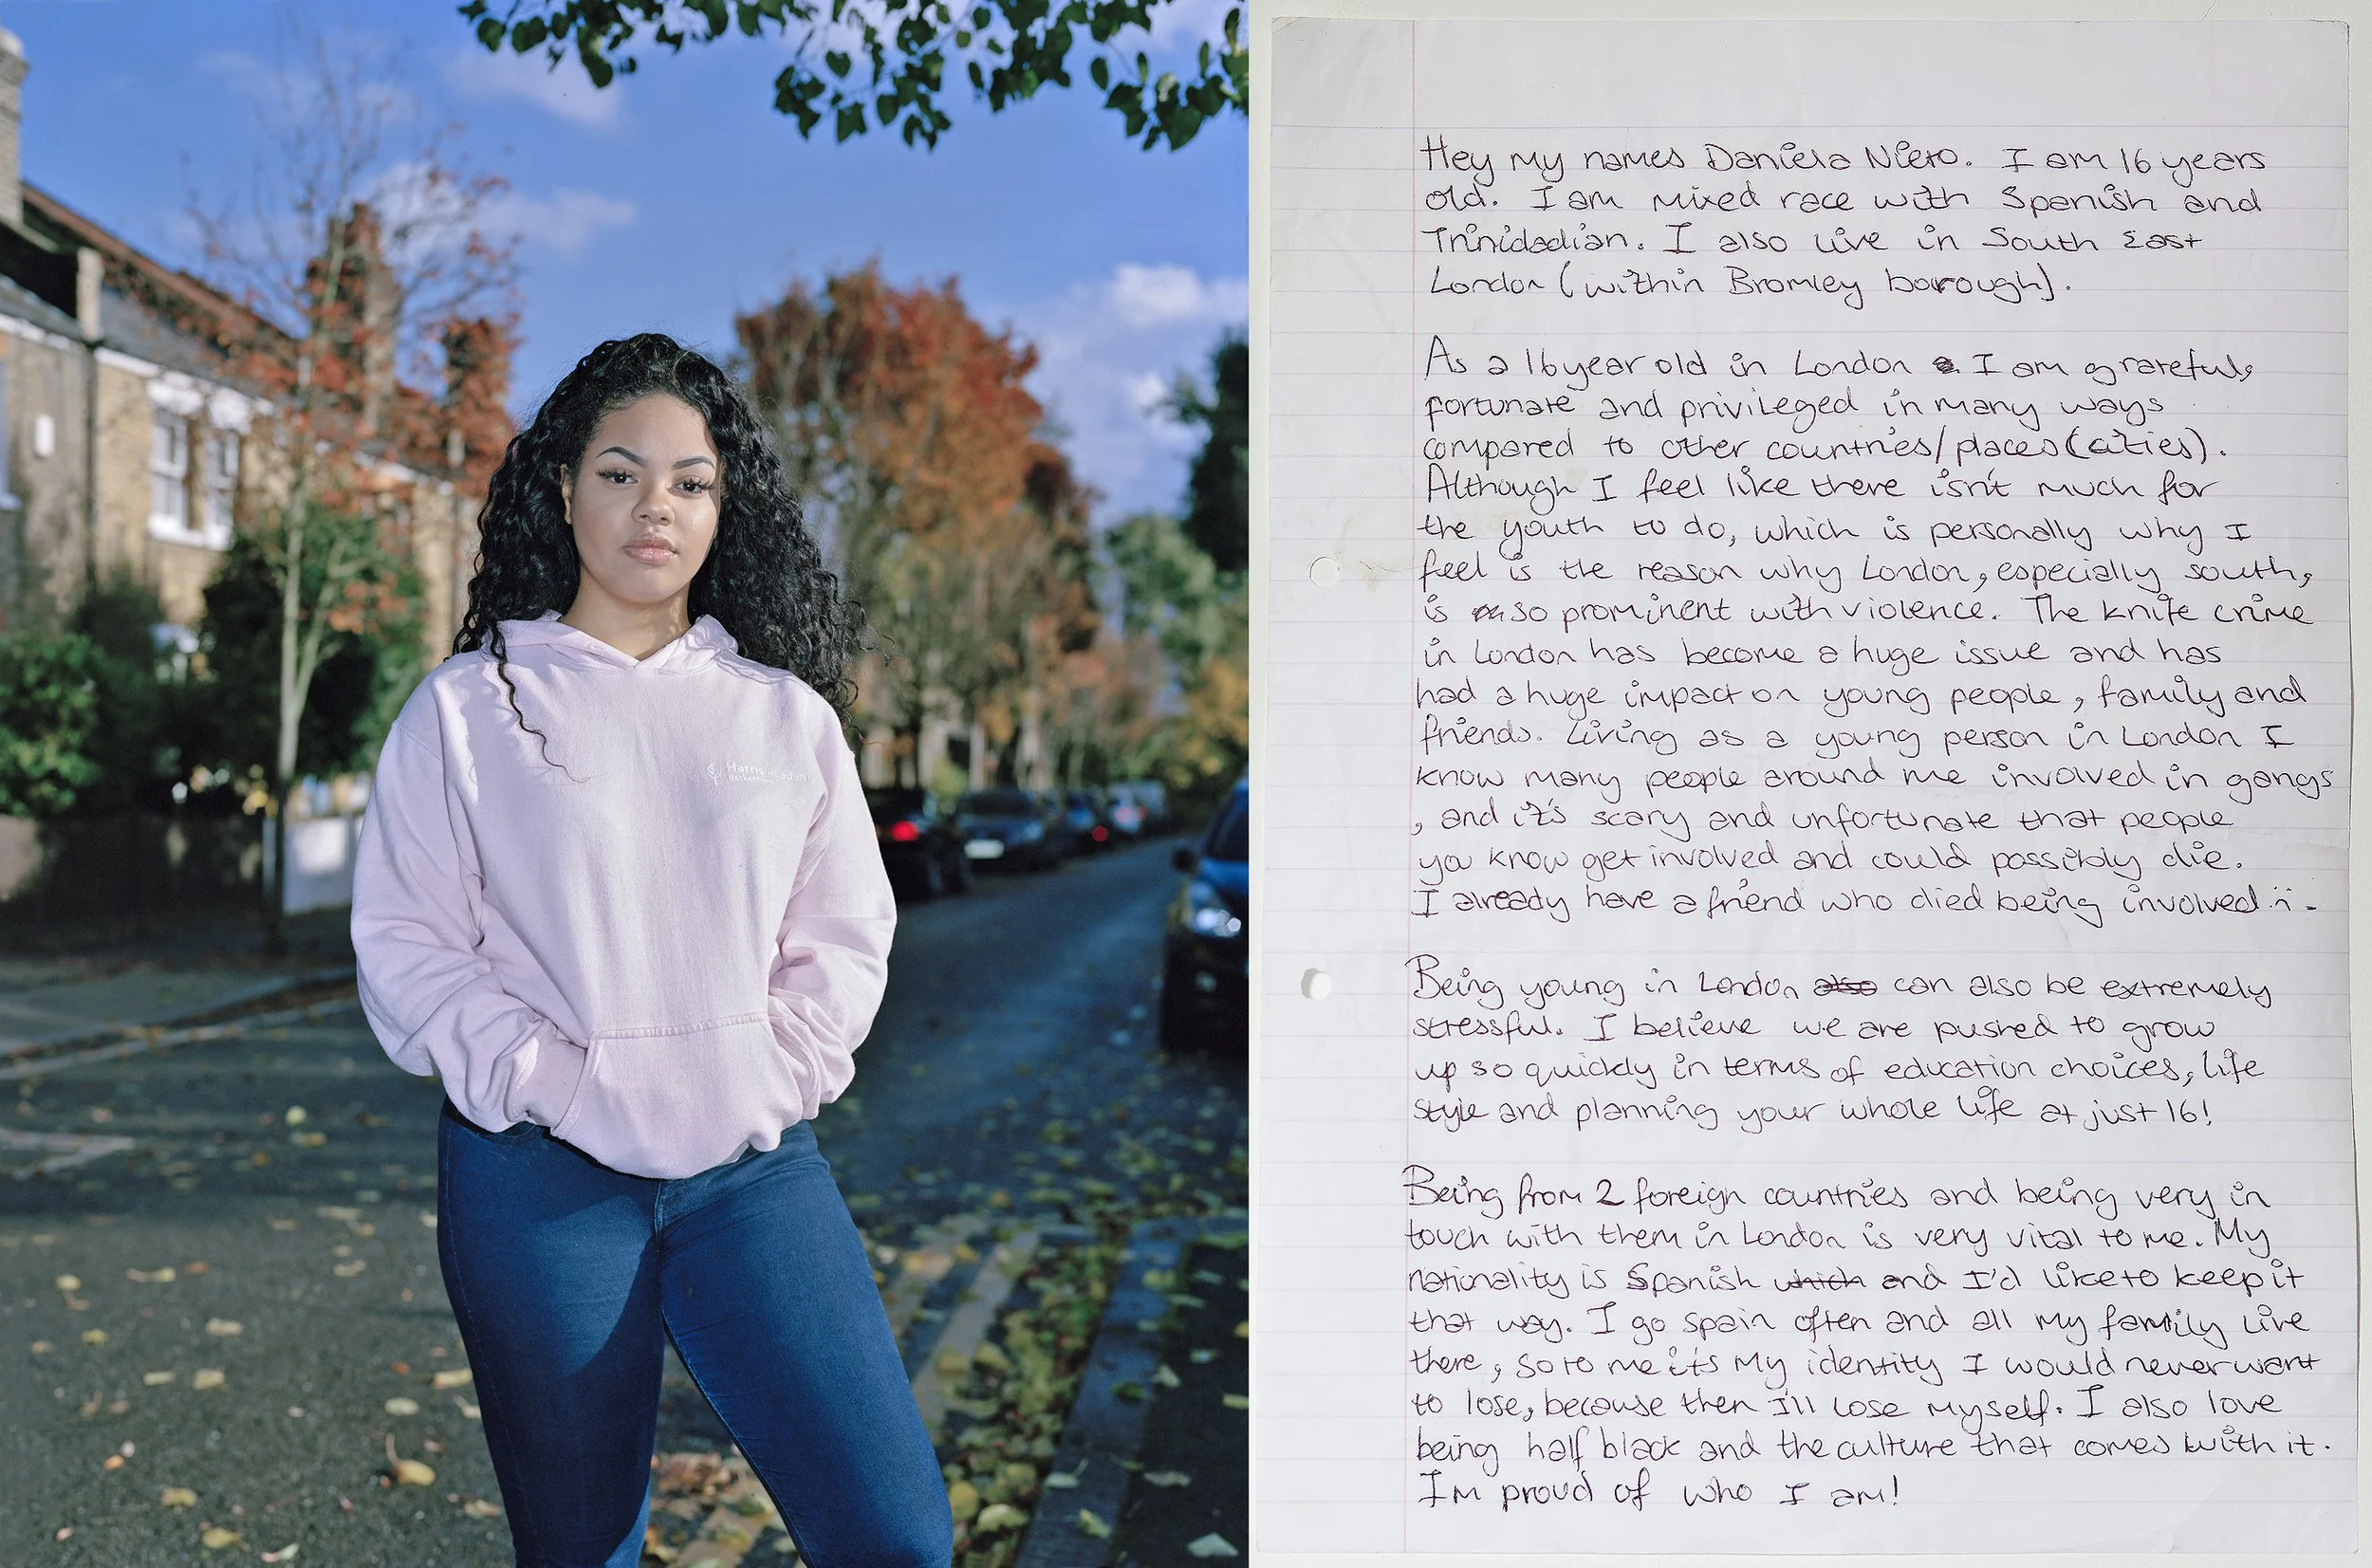 Harris Academy
Hey my names Daniela Nieto. I am 16 years
old. I am mixed race with Spanish and
Trinidadian. I also live in South East
London (within Bromley borough).
As a 16 year old in London I am grateful,
fortunate and privileged in many ways
compared to other countries/places (cities).
Although I feel like there isn't much for
the youth to do, which is personally why I
feel is the reason why London, especially south,
is so prominent with violence. The knife crime
in London has become a huge issue and has
had a huge impact on young people, family and
friends. Living as a young person in London I
know many people around me involved in gangs
, and it's scary and unfortunate that people
you know get involved and could possibly die.
I already have a friend who died being involved
Being young in London also can also be extremely
stressful. I believe we are pushed to grow
up so quickly in terms of education choices, life
style and planning your whole life at just 16!
Being from 2 foreign countries and being very in
touch with them in London is very vital to me. My
nationality is Spanish which and I'd like to keep it
that way. I go spain often and all my family live
there, so to me it's my identity I would never want
to lose, because then I'll lose myself. I also love
being half black and the culture that comes with it.
I'm proud of who I am!